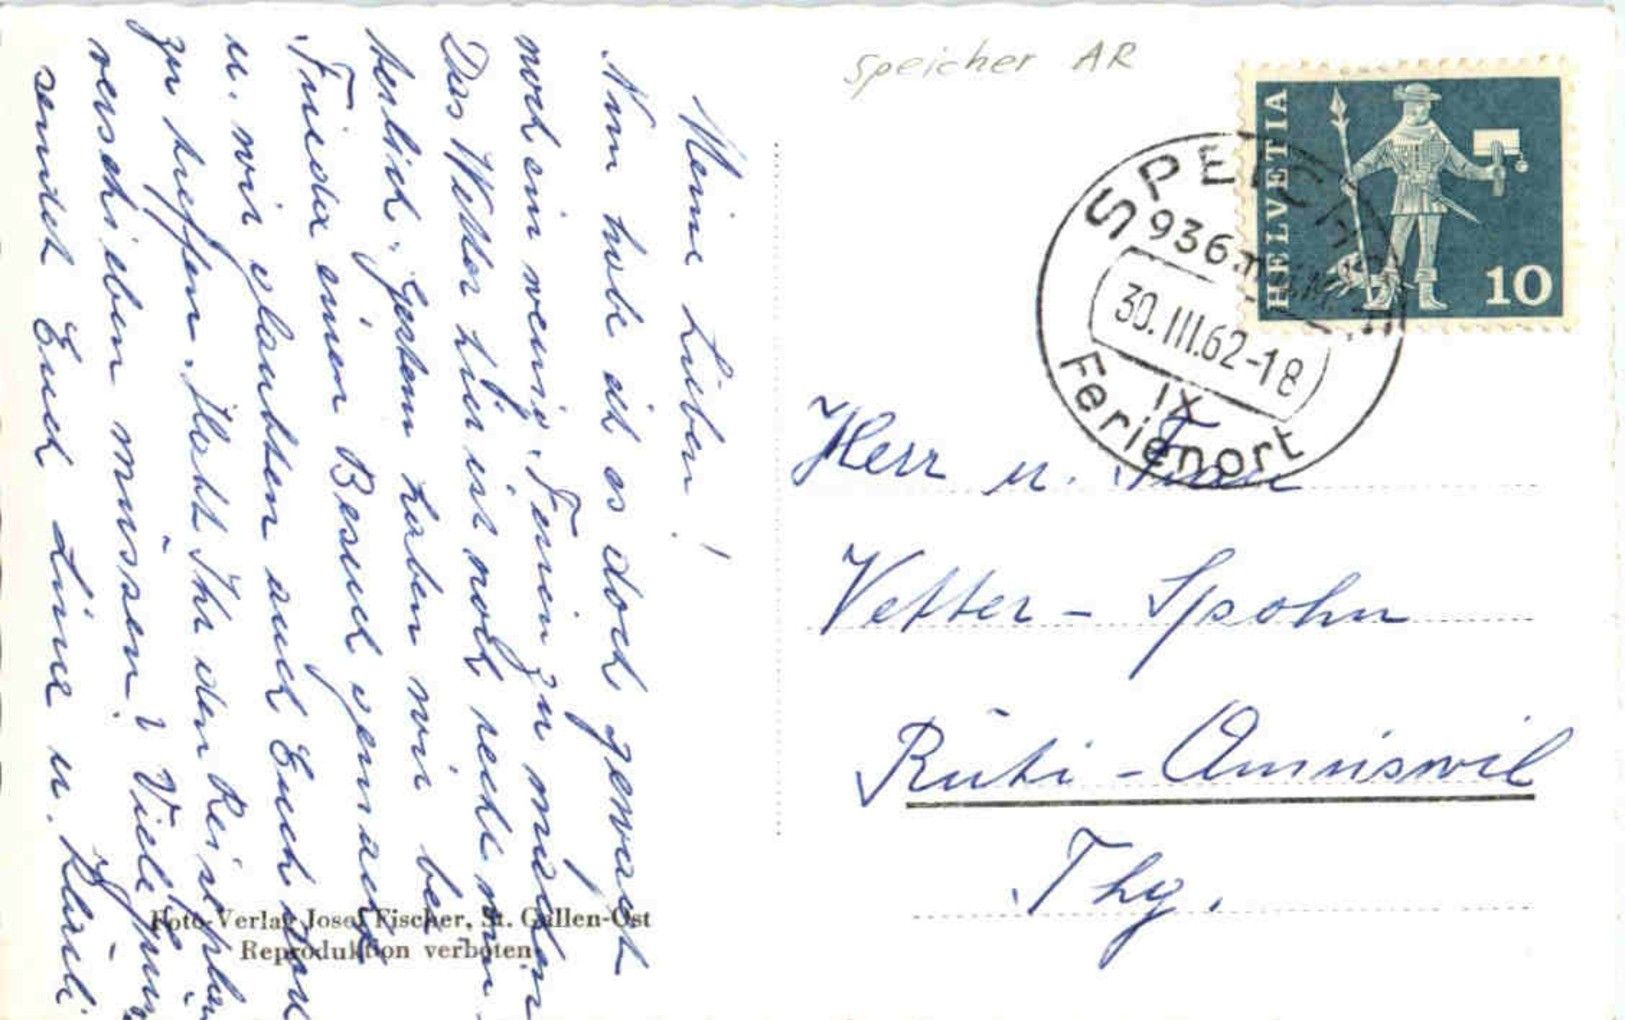 Meine Lieben!
Nun habe ich es doch gewagt
noch ein wenig Ferien zu machen
Das Wetter hier ist noch recht
herlich. Gestern haben wir bei
Frieda einen Besuch gemacht
u. wir glaubten auch Euch
zu treffen. Habt Ihr den Reiseplan
verschieben müssen? Viele
sendet Euch Line u. Kläuli.
Foto-Verlag Josef Fischer, St. Gallen-Ost
Reproduktion verboten
Speicher AR
HELVETIA
10
SPEICHER
936 m ü. M.
30.III.62-18
IX
Ferienort
Herr u. Frau
Vetter-Spohn
Rüti-Amriswil
Thg.